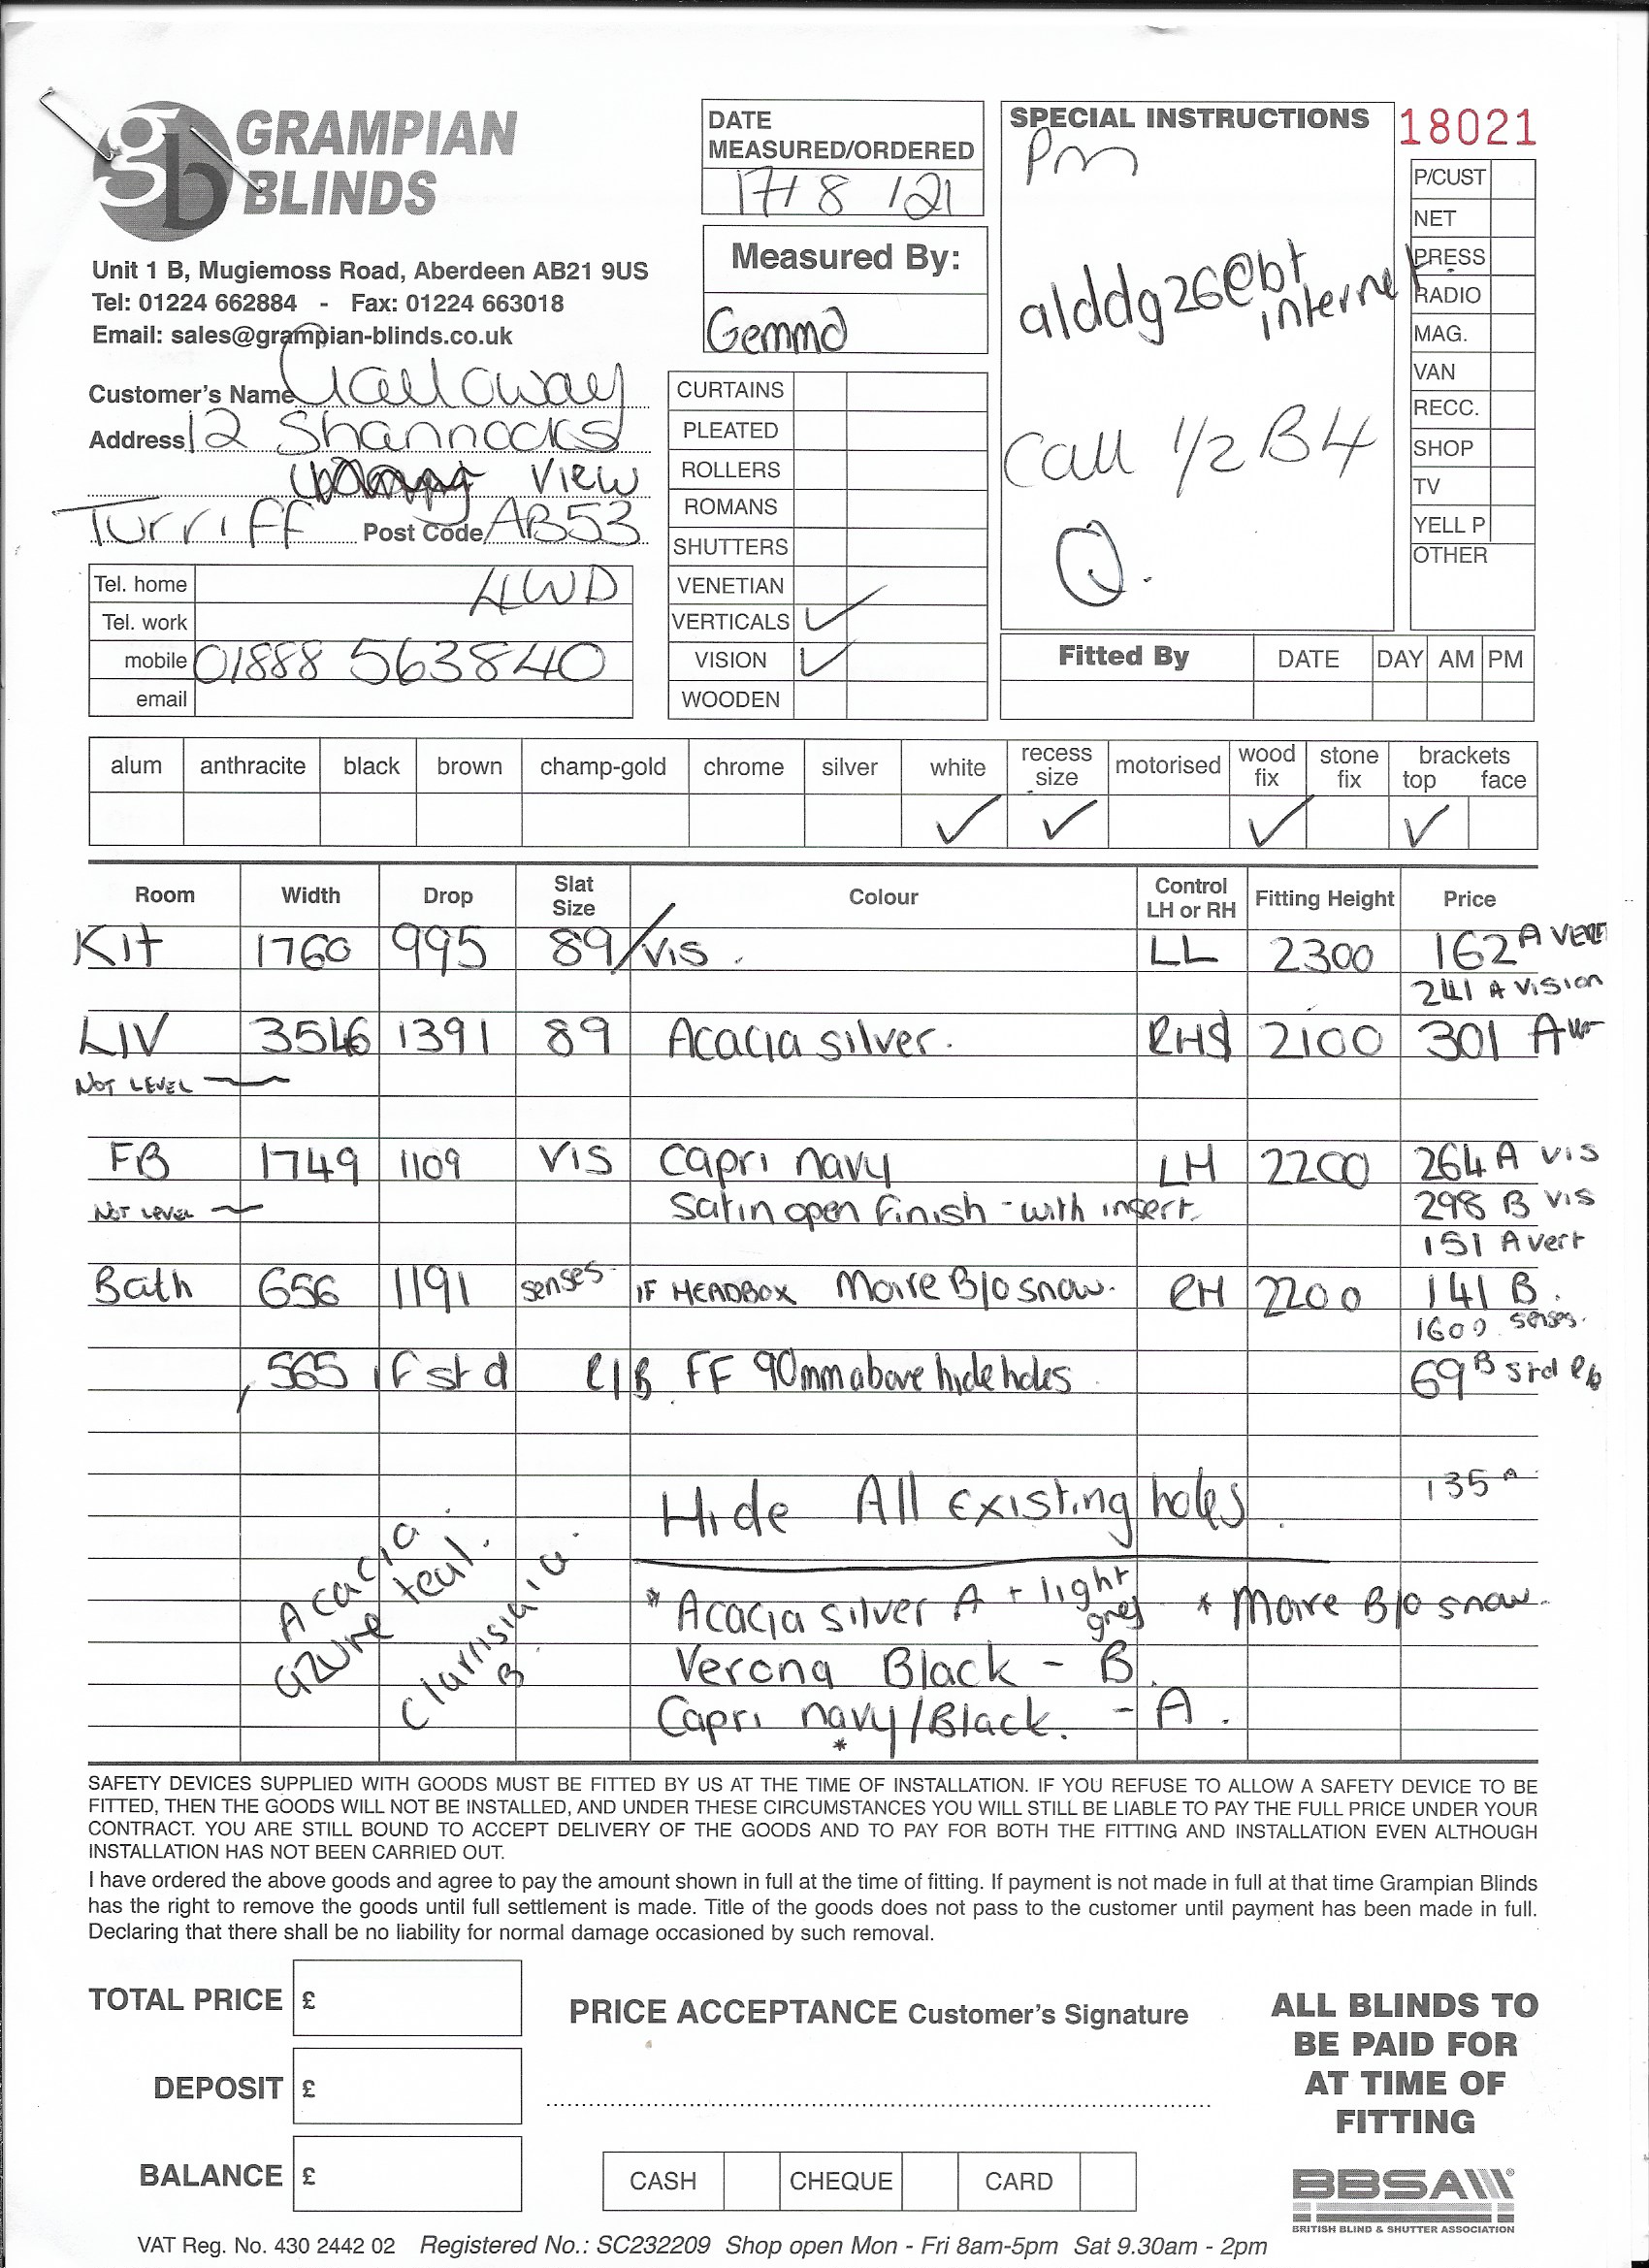 gb GRAMPIAN
BLINDS
Unit 1 B, Mugiemoss Road, Aberdeen AB21 9US
Tel: 01224 662884 - Fax: 01224 663018
Email: sales@grampian-blinds.co.uk
Customer's Name Galloway
Address 12 Shannocks
View
Turriff Post Code AB53
4WD
Tel. home
Tel. work
mobile 01888 563840
email
DATE
MEASURED/ORDERED
17/8/21
Measured By:
Gemma
CURTAINS
PLEATED
ROLLERS
ROMANS
SHUTTERS
VENETIAN
VERTICALS ✓
VISION ✓
WOODEN
SPECIAL INSTRUCTIONS
Pm
alddg26@bt
internet
Call 1/2 B4
Q.
18021
P/CUST
NET
PRESS
RADIO
MAG.
VAN
RECC.
SHOP
TV
YELL P
OTHER
Fitted By DATE DAY AM PM
alum anthracite black brown champ-gold chrome silver white recess size motorised wood fix stone fix brackets top face
✓ ✓ ✓ ✓
Room Width Drop Slat Size Colour Control LH or RH Fitting Height Price
Kit 1760 995 89/Vis. LL 2300 162 A VERT
241 A Vision
LIV 3546 1391 89 Acacia silver. RHS 2100 301 A
NOT LEVEL
FB 1749 1109 VIS Capri navy LH 2200 264 A vis
NOT LEVEL Satin open finish - with insert. 298 B vis
151 A vert
Bath 656 1191 senses IF HEADBOX Moire B/o snow. RH 2200 141 B.
1600 senses.
565 if std R/B FF 90mm above hide holes 69 B std R/b
135 A
Hide All existing holes
Acacia
azure teal.
B
* Acacia silver A + light grey * Moire B/o snow.
Verona Black - B
Capri navy/Black. - A.
*
SAFETY DEVICES SUPPLIED WITH GOODS MUST BE FITTED BY US AT THE TIME OF INSTALLATION. IF YOU REFUSE TO ALLOW A SAFETY DEVICE TO BE
FITTED, THEN THE GOODS WILL NOT BE INSTALLED, AND UNDER THESE CIRCUMSTANCES YOU WILL STILL BE LIABLE TO PAY THE FULL PRICE UNDER YOUR
CONTRACT. YOU ARE STILL BOUND TO ACCEPT DELIVERY OF THE GOODS AND TO PAY FOR BOTH THE FITTING AND INSTALLATION EVEN ALTHOUGH
INSTALLATION HAS NOT BEEN CARRIED OUT.
I have ordered the above goods and agree to pay the amount shown in full at the time of fitting. If payment is not made in full at that time Grampian Blinds
has the right to remove the goods until full settlement is made. Title of the goods does not pass to the customer until payment has been made in full.
Declaring that there shall be no liability for normal damage occasioned by such removal.
TOTAL PRICE £
DEPOSIT £
BALANCE £
PRICE ACCEPTANCE Customer's Signature
CASH CHEQUE CARD
ALL BLINDS TO
BE PAID FOR
AT TIME OF
FITTING
BBSA
BRITISH BLIND & SHUTTER ASSOCIATION
VAT Reg. No. 430 2442 02 Registered No.: SC232209 Shop open Mon - Fri 8am-5pm Sat 9.30am - 2pm